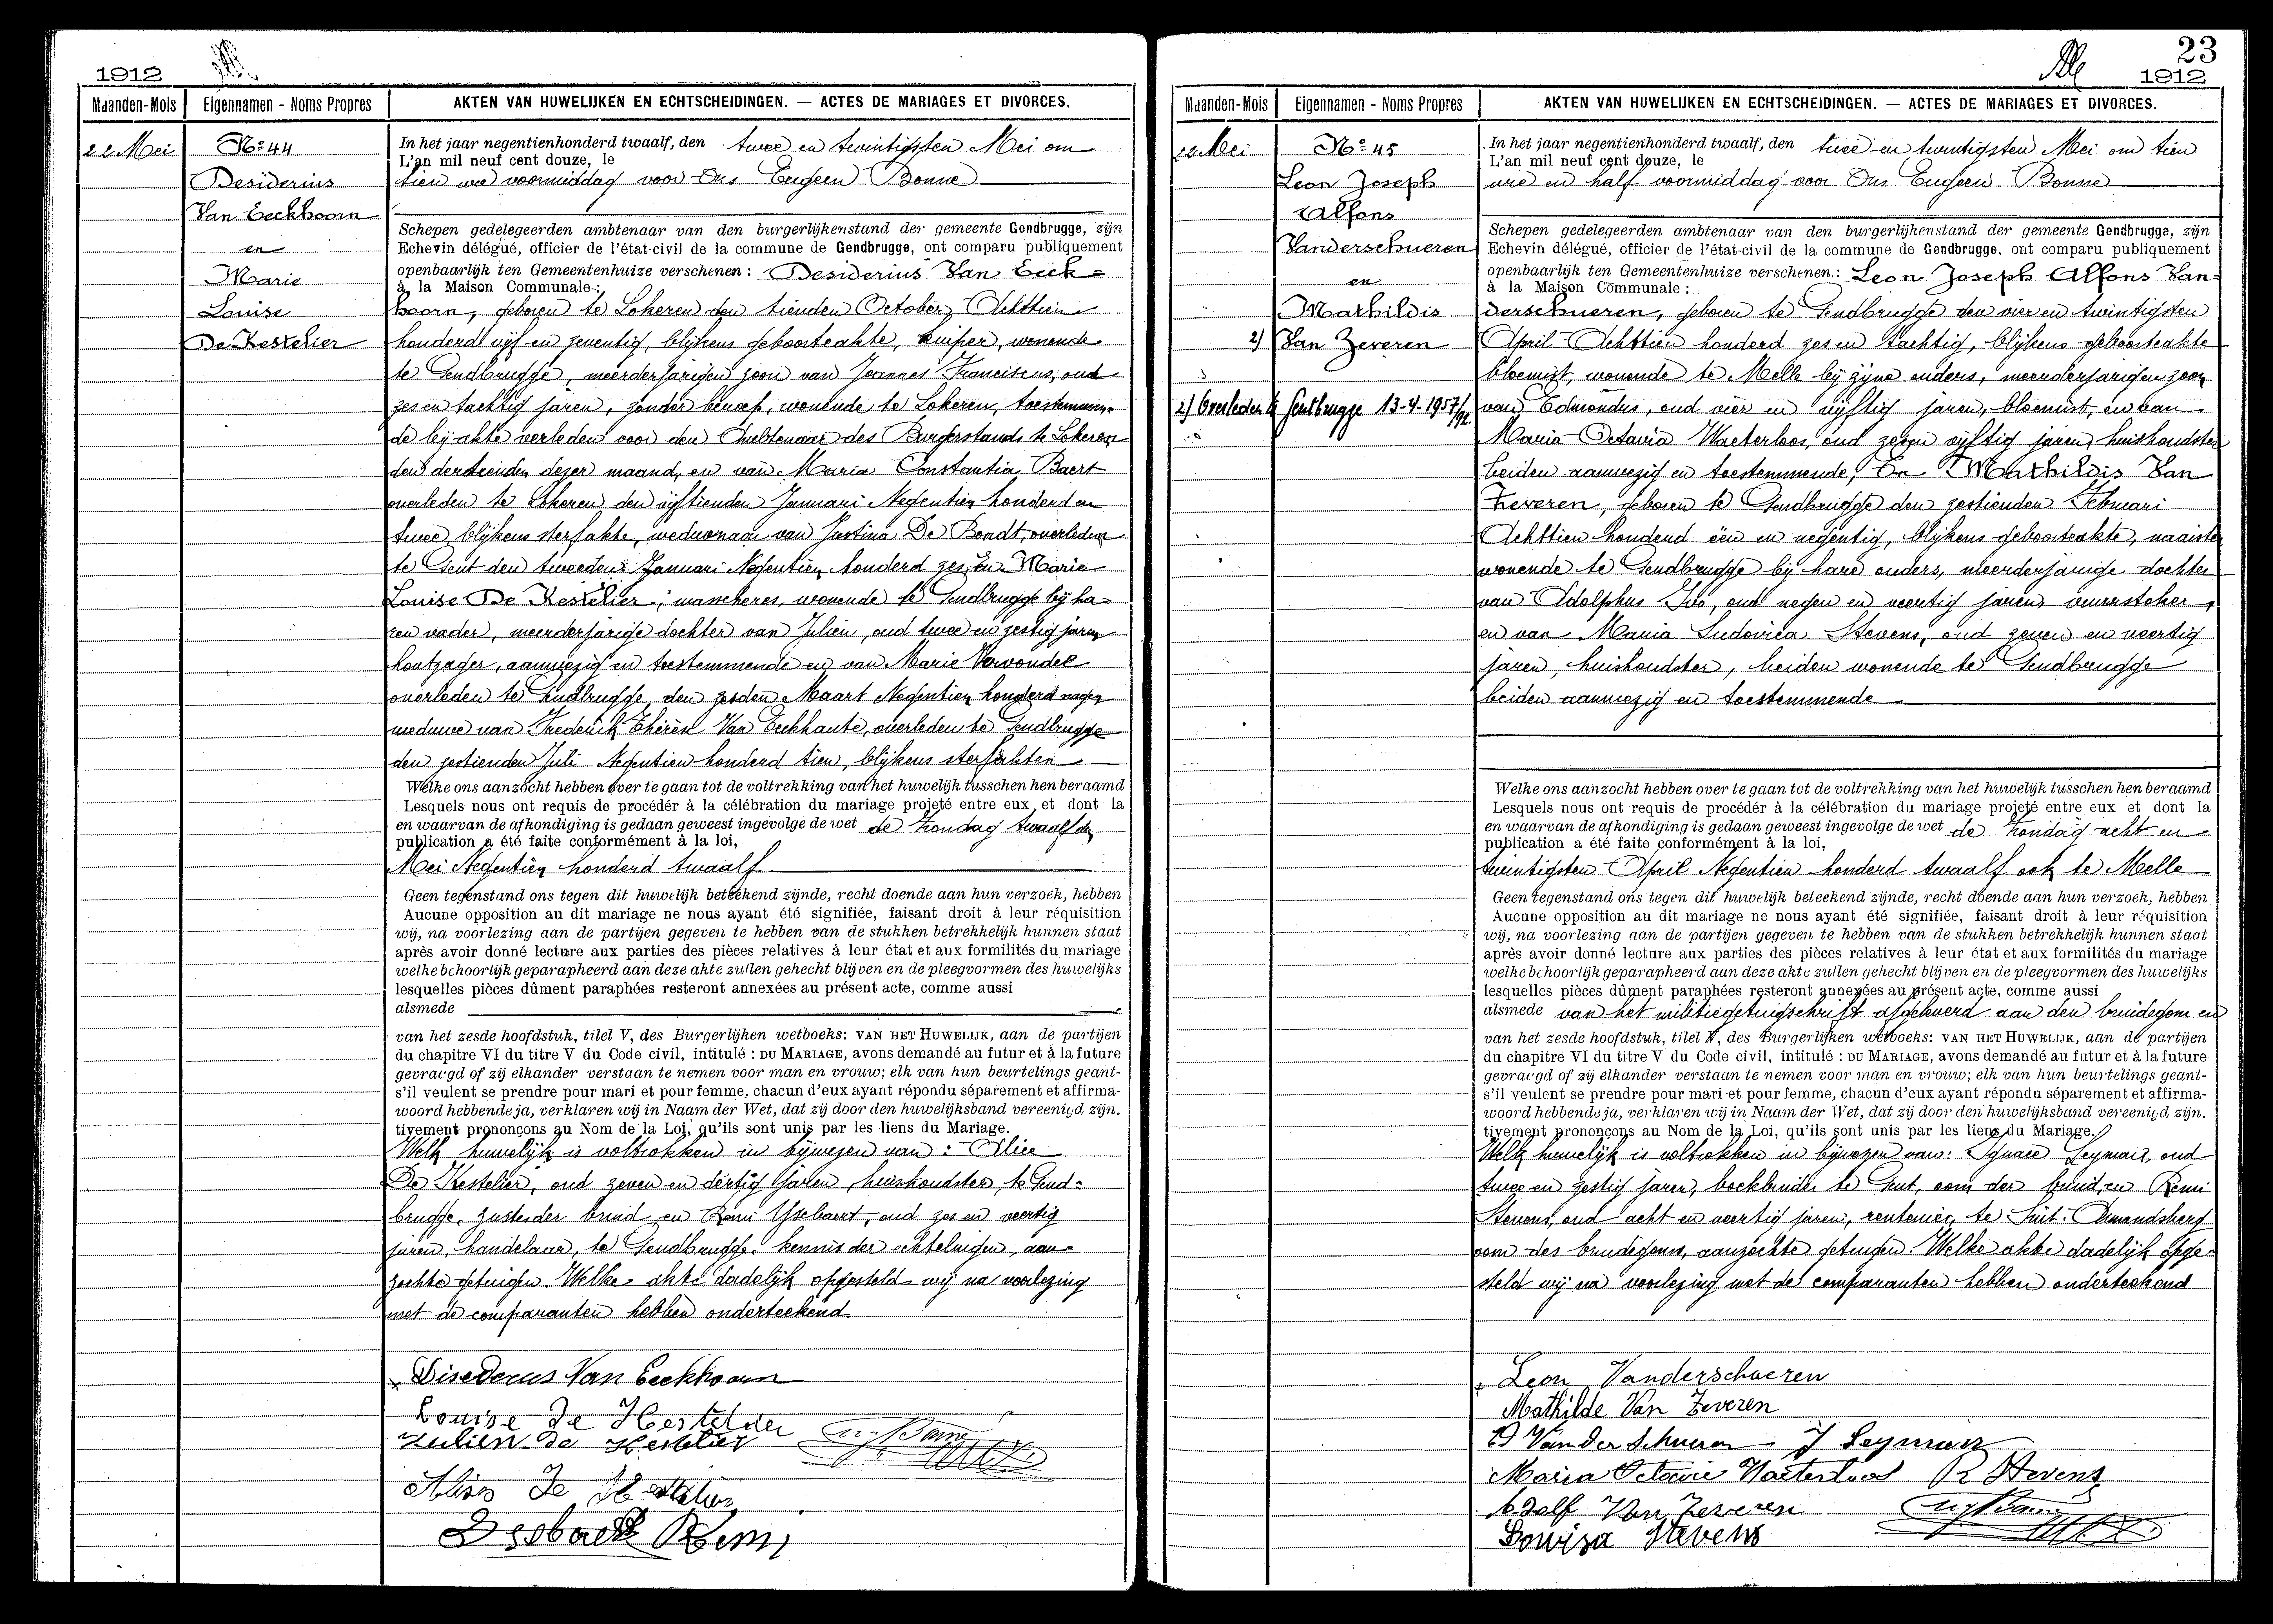 1912
Maanden-Mois
Eigennamen - Noms Propres
AKTEN VAN HUWELIJKEN EN ECHTSCHEIDINGEN. — ACTES DE MARIAGES ET DIVORCES.
22 Mei
No 44
Desiderius
Van Eeckhoorn
en
Marie
Louise
De Kestelier
In het jaar negentienhonderd twaalf, den twee en twintigsten Mei om
L'an mil neuf cent douze, le
tien ure voormiddag voor Ons Eugeen Bonne
Schepen gedelegeerden ambtenaar van den burgerlijkenstand der gemeente Gendbrugge, zijn
Echevin délégué, officier de l'état-civil de la commune de Gendbrugge, ont comparu publiquement
openbaarlijk ten Gemeentenhuize verschenen : Desiderius Van Eeck=
à la Maison Communale :
hoorn, geboren te Lokeren den tienden October Achttien
honderd vijf en zeventig, blijkens geboorteakte, kuiper, wonende
te Gendbrugge, meerderjarigen zoon van Joannes Franciscus, oud
zes en tachtig jaren, zonder beroep, wonende te Lokeren, toestemmen-
de bij akte verleden voor den Ambtenaar des Burgerstands te Lokeren
den dertienden dezer maand, en van Maria Constantia Baert
overleden te Lokeren den vijftienden Januari Negentien honderd en
twee, blijkens sterfakte, weduwnaar van Justina De Bondt, overleden
te Gent den tweeden Januari Negentien honderd zes, En Marie
Louise De Kestelier, wascheres, wonende te Gendbrugge bij ha=
ren vader, meerderjarige dochter van Julien, oud twee en zestig jaren
houtzager, aanwezig en toestemmende en van Marie Vervondel
overleden te Gendbrugge, den zesden Maart Negentien honderd negen
weduwe van Frederik Van Eeckhaute, overleden te Gendbrugge
den zestienden Juli Negentien honderd tien, blijkens sterfakten
Welke ons aanzocht hebben over te gaan tot de voltrekking van het huwelijk tusschen hen beraamd
Lesquels nous ont requis de procéder à la célébration du mariage projeté entre eux et dont la
en waarvan de afkondiging is gedaan geweest ingevolge de wet de Zondag twaalf den
publication a été faite conformément à la loi,
Mei Negentien honderd twaalf
Geen tegenstand ons tegen dit huwelijk beteekend zijnde, recht doende aan hun verzoek, hebben
Aucune opposition au dit mariage ne nous ayant été signifiée, faisant droit à leur réquisition
wij, na voorlezing aan de partijen gegeven te hebben van de stukken betrekkelijk hunnen staat
après avoir donné lecture aux parties des pièces relatives à leur état et aux formilités du mariage
welke behoorlijk geparapheerd aan deze akte zullen gehecht blijven en de pleegvormen des huwelijks
lesquelles pièces dûment paraphées resteront annexées au présent acte, comme aussi
alsmede
van het zesde hoofdstuk, tilel V, des Burgerlijken wetboeks: VAN HET HUWELIJK, aan de partijen
du chapitre VI du titre V du Code civil, intitulé : DU MARIAGE, avons demandé au futur et à la future
gevraagd of zij elkander verstaan te nemen voor man en vrouw; elk van hun beurtelings geant-
s'il veulent se prendre pour mari et pour femme, chacun d'eux ayant répondu séparement et affirma-
woord hebbende ja, verklaren wij in Naam der Wet, dat zij door den huwelijksband vereenigd zijn.
tivement prononçons au Nom de la Loi, qu'ils sont unis par les liens du Mariage.
Welk huwelijk is voltrokken in bijwezen van : Alice
De Kestelier, oud zeven en dertig jaren, huishoudster, te Gend=
brugge, zuster der bruid en Remi Ysebaert, oud zes en veertig
jaren, handelaar, te Gendbrugge, kennis der echtelingen, aan=
zochte getuigen. Welke akte dadelijk opgesteld wij na voorlezing
met de comparanten hebben onderteekend
Disederus Van Eeckhoorn
Louise De Kestelier
Julien De Kestelier
Remi
23
1912
Maanden-Mois
Eigennamen - Noms Propres
AKTEN VAN HUWELIJKEN EN ECHTSCHEIDINGEN. — ACTES DE MARIAGES ET DIVORCES.
22 Mei
No 45
Leon Joseph
Alfons
Vanderschueren
en
Mathildis
2) Van Zeveren
2) Overleden te Gentbrugge 13-4-1957
In het jaar negentienhonderd twaalf, den twee en twintigsten Mei om tien
L'an mil neuf cent douze, le
ure en half voormiddag voor Ons Eugeen Bonne
Schepen gedelegeerden ambtenaar van den burgerlijkenstand der gemeente Gendbrugge, zijn
Echevin délégué, officier de l'état-civil de la commune de Gendbrugge, ont comparu publiquement
openbaarlijk ten Gemeentenhuize verschenen : Leon Joseph Alfons Van=
à la Maison Communale :
derschueren, geboren te Gendbrugge den vier en twintigsten
April Achttien honderd zes en tachtig, blijkens geboorteakte
bloemist, wonende te Melle bij zijne ouders, meerderjarigen zoon
van Edmondus, oud vier en vijftig jaren, bloemist, en van
Maria Octavia Waeterloos, oud zes en vijftig jaren, huishoudster
beiden aanwezig en toestemmende, En Mathildis Van
Zeveren, geboren te Gendbrugge den zestienden Februari
Achttien honderd één en negentig, blijkens geboorteakte, naaister
wonende te Gendbrugge bij hare ouders, meerderjarige dochter
van Adolphus Ivo, oud negen en veertig jaren, vuurstoker,
en van Maria Ludovica Stevens, oud zeven en veertig
jaren, huishoudster, beiden wonende te Gendbrugge
beiden aanwezig en toestemmende.
Welke ons aanzocht hebben over te gaan tot de voltrekking van het huwelijk tusschen hen beraamd
Lesquels nous ont requis de procédér à la célébration du mariage projeté entre eux et dont la
en waarvan de afkondiging is gedaan geweest ingevolge de wet de Zondag acht en
publication a été faite conformément à la loi,
twintigsten April Negentien honderd twaalf ook te Melle
Geen tegenstand ons tegen dit huwelijk beteekend zijnde, recht doende aan hun verzoek, hebben
Aucune opposition au dit mariage ne nous ayant été signifiée, faisant droit à leur réquisition
wij, na voorlezing aan de partijen gegeven te hebben van de stukken betrekkelijk hunnen staat
après avoir donné lecture aux parties des pièces relatives à leur état et aux formilités du mariage
welke behoorlijk geparapheerd aan deze akte zullen gehecht blijven en de pleegvormen des huwelijks
lesquelles pièces dûment paraphées resteront annexées au présent acte, comme aussi
alsmede van het militiegetuigschrift afgeleverd aan den bruidegom en
van het zesde hoofdstuk, tilel V, des Burgerlijken wetboeks: VAN HET HUWELIJK, aan de partijen
du chapitre VI du titre V du Code civil, intitulé : DU MARIAGE, avons demandé au futur et à la future
gevraagd of zij elkander verstaan te nemen voor man en vrouw; elk van hun beurtelings geant-
s'il veulent se prendre pour mari et pour femme, chacun d'eux ayant répondu séparement et affirma-
woord hebbende ja, verklaren wij in Naam der Wet, dat zij door den huwelijksband vereenigd zijn.
tivement prononçons au Nom de la Loi, qu'ils sont unis par les liens du Mariage.
Welk huwelijk is voltrokken in bijwezen van: Ignace Leyman, oud
twee en zestig jaren, boekbinder te Gent, oom der bruid, en Remi
Stevens, oud acht en veertig jaren, rentenier, te Sint-Amandsberg
oom des bruidegoms, aanzochte getuigen. Welke akte dadelijk opge-
steld wij na voorlezing met de comparanten hebben onderteekend
Leon Vanderschueren
Mathilde Van Zeveren
Ed Van der Schueren J Leyman
Maria Octavie Waterloos R Stevens
Adolf Van Zeveren
Lowisa Stevens